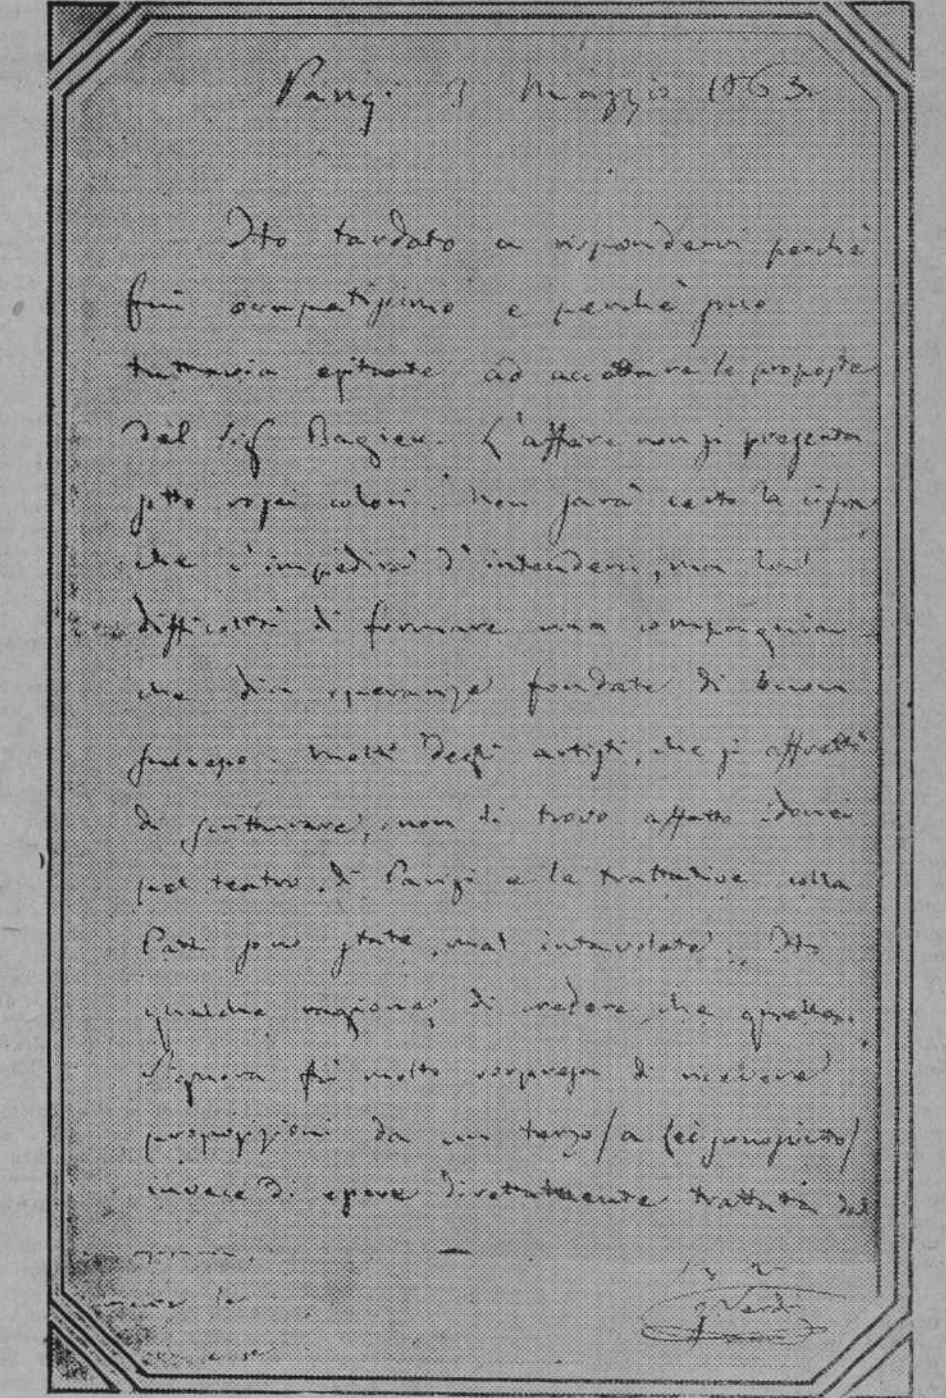 Parigi 3 Maggio 1863.
Ho tardato a rispondervi perchè
fui occupatissimo e perchè sono
tuttavia esitante ad accettare le proposte
del Sig Bagier. L'affare non si presenta
sotto rosei colori. Non sarà certo la cifra
che c'impedirà d'intenderci, ma la
difficoltà di formare una compagnia
che dia speranze fondate di buon
successo. Molti degli artisti, che si affrettò
di scritturare, non li trovo affatto idonei
pel teatro di Parigi e le trattative colla
sono state mal intavolate. Ho
qualche ragione di credere che quella
Signora fu molto sorpresa di ricevere
proposizioni da un terzo
invece di essere direttamente trattata dal
G Verdi